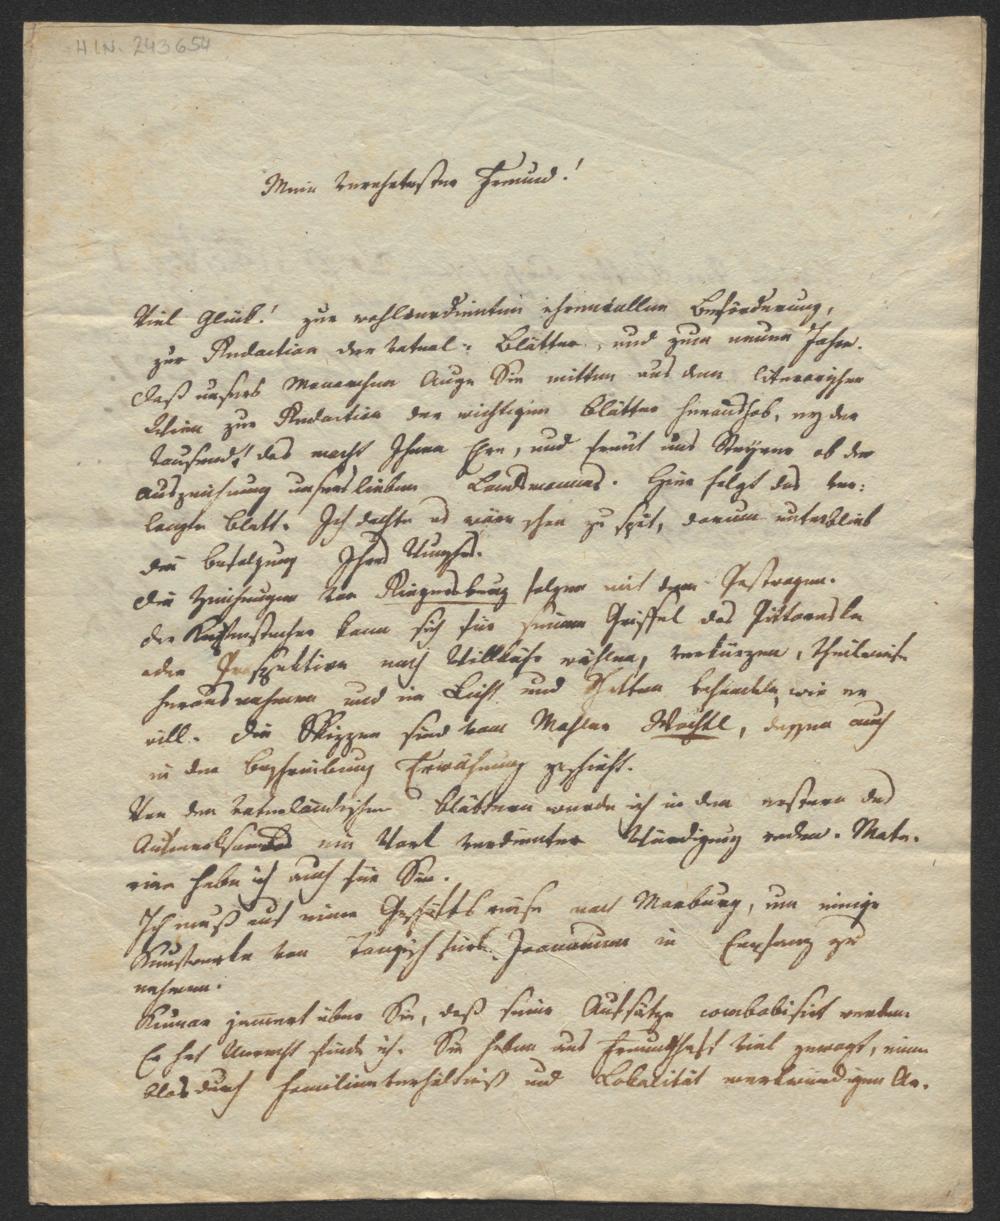 H.I.N. 243654
Mein verehrtester Freund!
Viel Glück! zur wohlverdienten ehrenvollen Beförderung,
zur Redaction der vaterl: Blätter, und zum neuen Jahre.
Daß unsers Monarchen Auge Sie mitten aus dem literarischen
Wien zur Redaction der wichtigen Blätter heraushob, ey der
tausend! das macht Ihnen Ere, und freut uns Steyrer ob der
Auszeichnung unsers lieben Landsmannes. Hier folgt das ver:
langte Blatt. Ich dachte es wäre schon zu spät, darum unterblieb
die Befolgung Ihres Wunsches.
Die Zeichnungen von Riegersburg folgen mit dem
Der Kupferstecher kann sich für seinen Griffel das Pittoreske
oder Prospektive nach Willkühr wählen, verkürzen, theilweise
herausnehmen und in Licht und Schatten behandeln, wie er
will. Die Skizzen sind vom Mahler Wachtl, dessen auch
in der Beschreibung Erwähnung geschieht.
Von den vaterländischen Blättern werde ich in dem ersten des
Aufmerksamen ein Wort verdienter Würdigung reden. Mate-
rien habe ich auch für Sie.
Ich muß auf eine Geschäftsreise nach Marburg, um einige
Kunstwerke von fürs Joanneum in Empfang zu
nehmen.
Kumar jammert über Sie, daß seine Aufsätze combabisirt werden.
Er hat Unrecht finde ich. Sie haben aus Freundschaft viel gewagt, einen
blos durch Familienverhältniß und Lokalität merkwürdigen Ar-